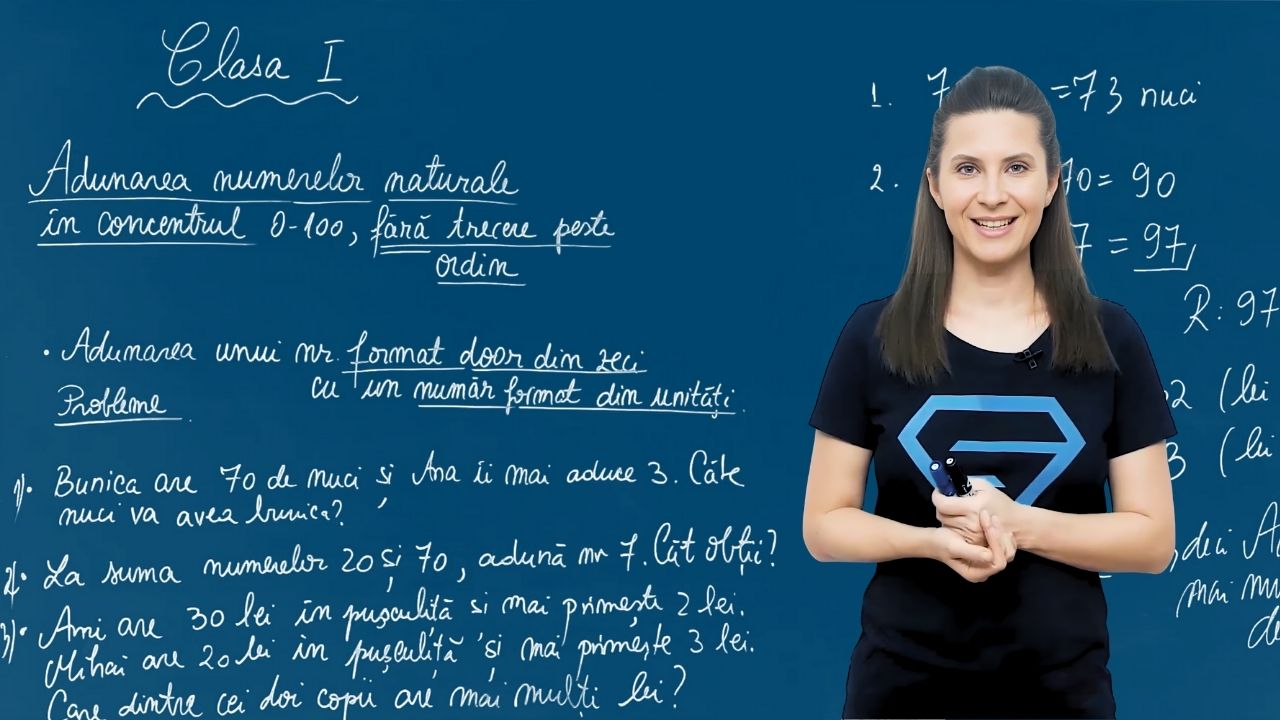 Clasa I
Adunarea numerelor naturale
în concentrul 0-100, fără trecere peste
ordin
• Adunarea unui nr. format doar din zeci
cu un număr format din unități.
Probleme
1). Bunica are 70 de nuci și Ana îi mai aduce 3. Câte
nuci va avea bunica?
2). La suma numerelor 20 și 70, adună nr 7. Cât obții?
3). Ami are 30 lei în pușculiță si mai primește 2 lei.
Mihai are 20 lei în pușculiță și mai primește 3 lei.
Care dintre cei doi copii are mai mulți lei?
1. 7 =73 nuci
2. 70= 90
7 = 97
R: 97
2 (lei
3 (lei
, deci
mai mu
de